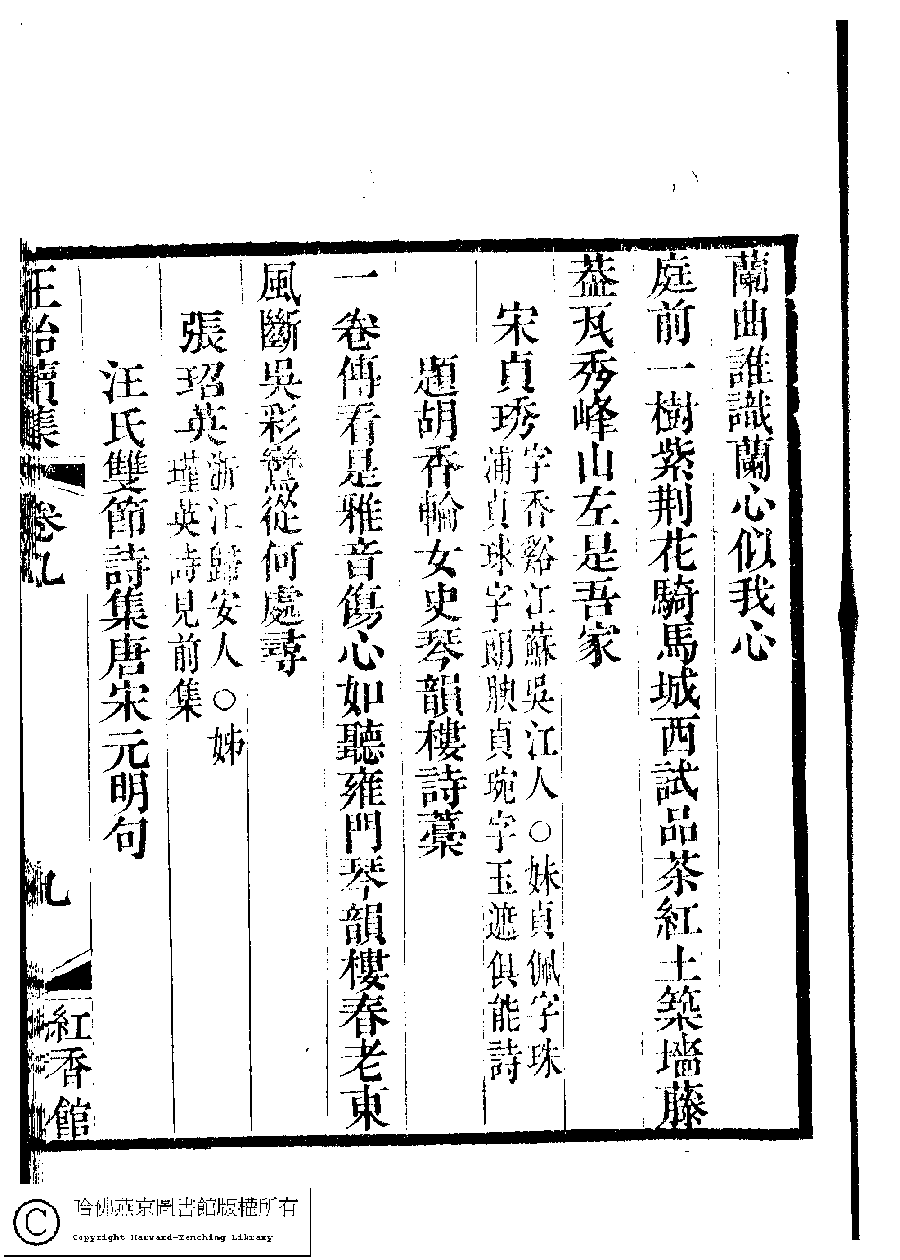 蘭曲誰識蘭心似我心
庭前一樹紫荆花騎馬城西試品茶紅土築墻藤
葢瓦秀峰山左是吾家
宋貞琇
字香谿江蘇吳江人○妹貞佩字珠
浦貞球字朗腴貞琬字玉遮俱能詩
題胡香輪女史琴韻樓詩藁
一卷傳看是雅音傷心如聽雍門琴韻樓春老東
風斷吳彩鸞從何處尋
張玿英
浙江歸安人○姊
瑾英詩見前集
汪氏雙節詩集唐宋元明句
正始續集 卷九 九 紅香館
哈佛燕京圖書館版權所有
Copyright Harvard-Yenching Library